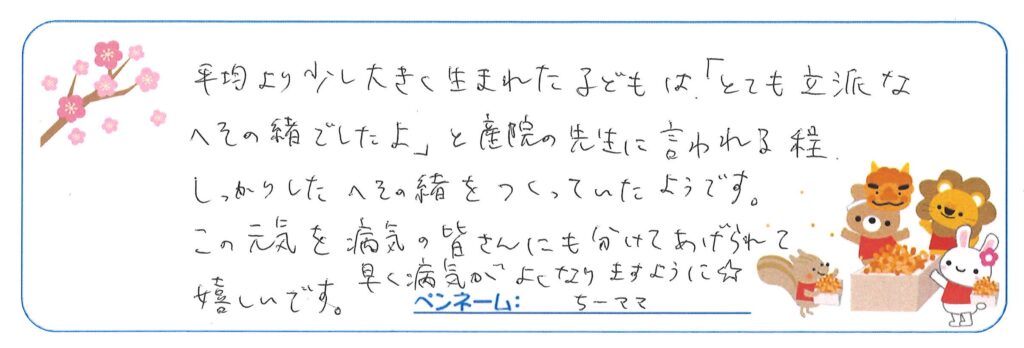 平均より少し大きく生まれた子どもは、「とても立派な
へその緒でしたよ」と産院の先生に言われる程、
しっかりしたへその緒をつくっていたようです。
この元気を病気の皆さんにも分けてあげられて
嬉しいです。早く病気がよくなりますように☆
ペンネーム: ちーママ